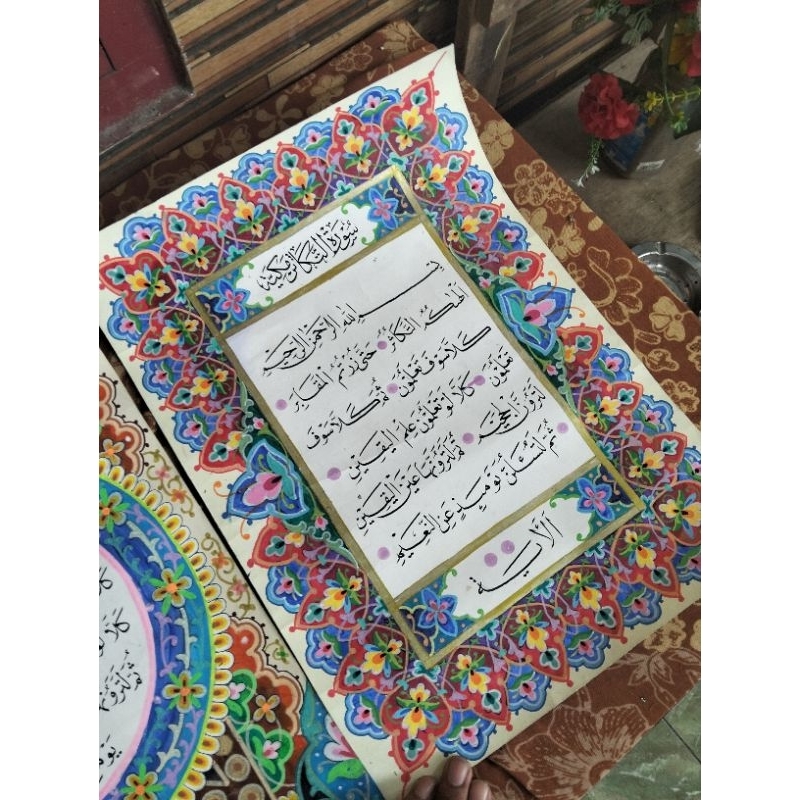 سُوْرَةُ التَّكَاثُرِ مَكِّيَّة
بِسْمِ اللهِ الرَّحْمٰنِ الرَّحِيْمِ
اَلْهٰىكُمُ التَّكَاثُرُ حَتّٰى زُرْتُمُ الْمَقَابِرَ
كَلَّا سَوْفَ تَعْلَمُوْنَ ثُمَّ كَلَّا سَوْفَ
تَعْلَمُوْنَ كَلَّا لَوْ تَعْلَمُوْنَ عِلْمَ الْيَقِيْنِ
لَتَرَوُنَّ الْجَحِيْمَ ثُمَّ لَتَرَوُنَّهَا عَيْنَ الْيَقِيْنِ
ثُمَّ لَتُسْئَلُنَّ يَوْمَئِذٍ عَنِ النَّعِيْمِ
اَلْأٰيَة
كَلَّا
ثُمَّ لَتَرَوُنَّهَا